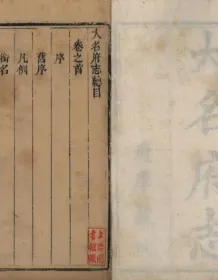 大名府志總目
卷之首
序
舊序
凡例
銜名
大名府志